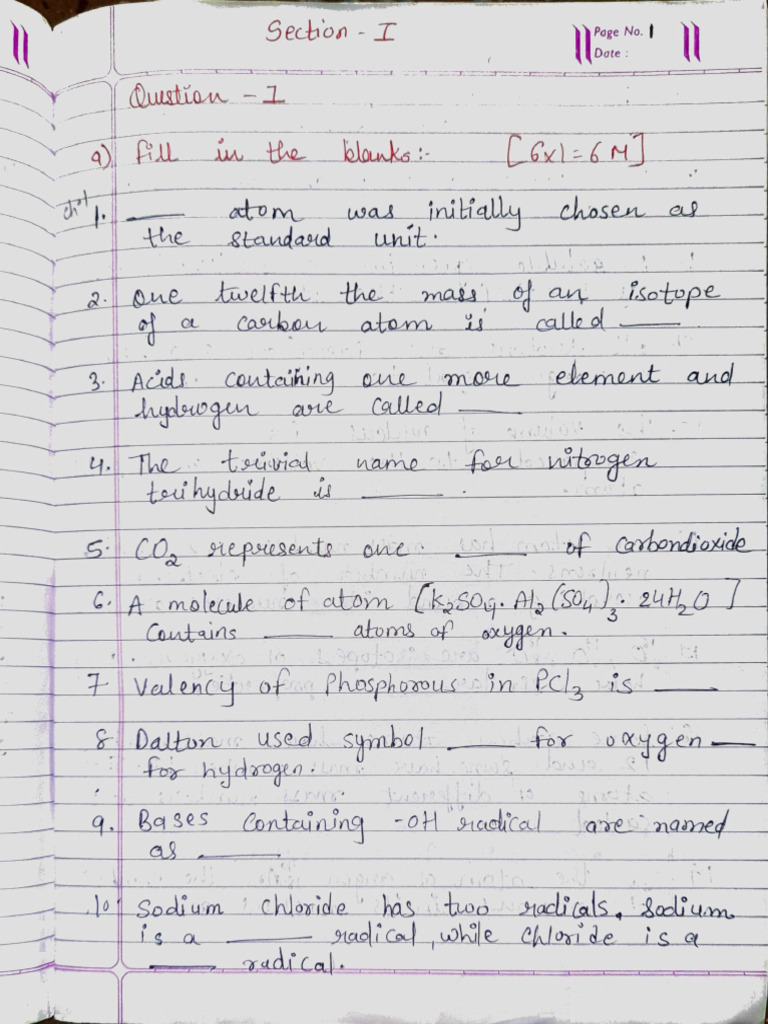 Section - I
Page No. 1
Date :
Question - I
a) Fill in the blanks:- [6x1=6M]
ch-1
1. ____ atom was initially chosen as
the standard unit.
2. One twelfth the mass of an isotope
of a carbon atom is called ____
3. Acids containing one more element and
hydrogen are called ____
4. The trivial name for nitrogen
trihydride is ____.
5. CO₂ represents one ____ of carbondioxide
6. A molecule of atom [K₂SO₄. Al₂(SO₄)₃. 24H₂O]
Contains ____ atoms of oxygen.
7 Valency of Phosphorous in PCl₃ is ____
8 Dalton used symbol ____ for oxygen ____
for hydrogen.
9. Bases containing -OH radical are named
as ____
10 Sodium chloride has two radicals. Sodium
is a ____ radical, while chloride is a
____ radical.